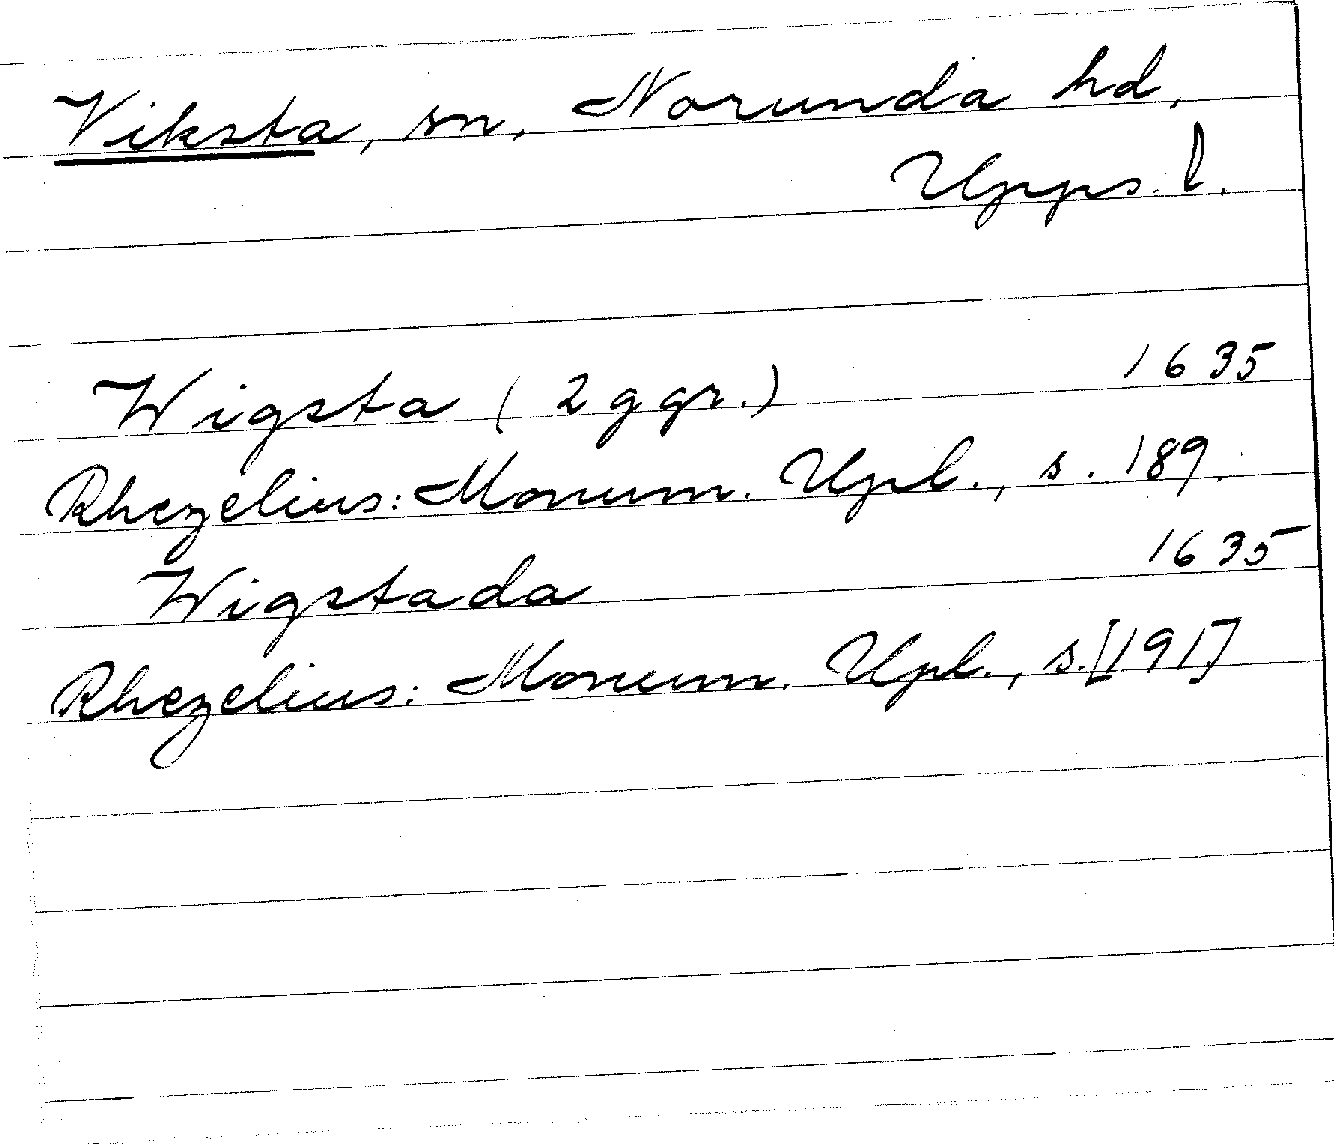 Viksta, sn, Norunda hd,
Upps. l.
Wigsta (2 ggr.) 1635
Rhezelius: Monum. Upl., s. 189.
Wigstada 1635
Rhezelius: Monum. Upl., s. [191]